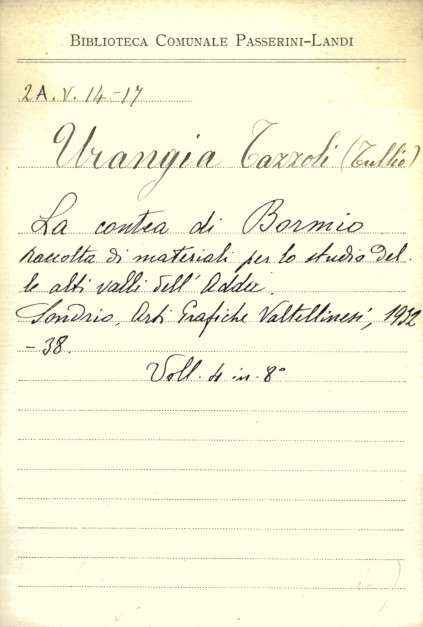 BIBLIOTECA COMUNALE PASSERINI-LANDI
2A. V. 14-17
Urangia Tazzoli (Tullio)
La contea di Bormio
raccolta di materiali per lo studio del-
le alti valli dell'Adda.
Sondrio, Arti Grafiche Valtellinesi, 1932
-38.
Voll. 4 in 8°